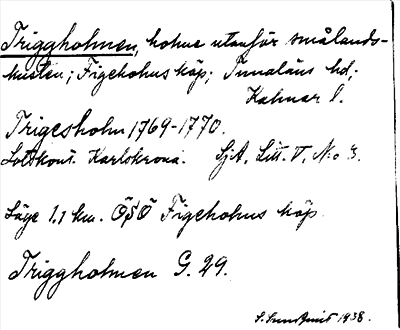 Triggholmen, holme utanför smålands-
kusten; Figeholms köp; Tunaläns hd;
Kalmar l.
Trigesholm 1769-1770.
Lotskont. Karlskrona. SjA, Litt. V, No 3.
Läge 1.1 km. ÖSÖ Figeholms köp
Triggholmen G. 29.
S. Sundqvist 1938.